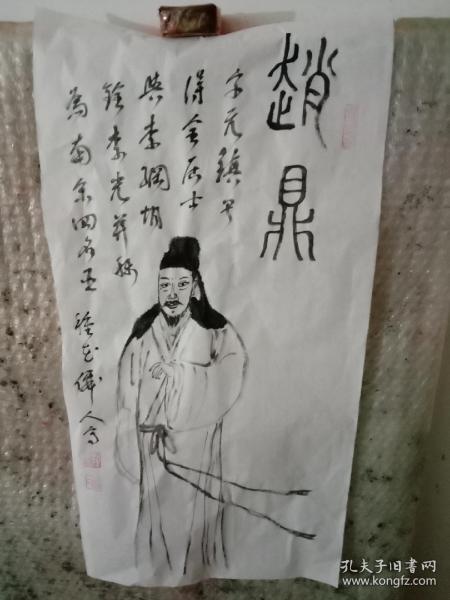 趙鼎
字元鎮号
得全居士
與李綱胡
銓李光並称
為南宋四名臣
人写
孔夫子旧书网
www.kongfz.com